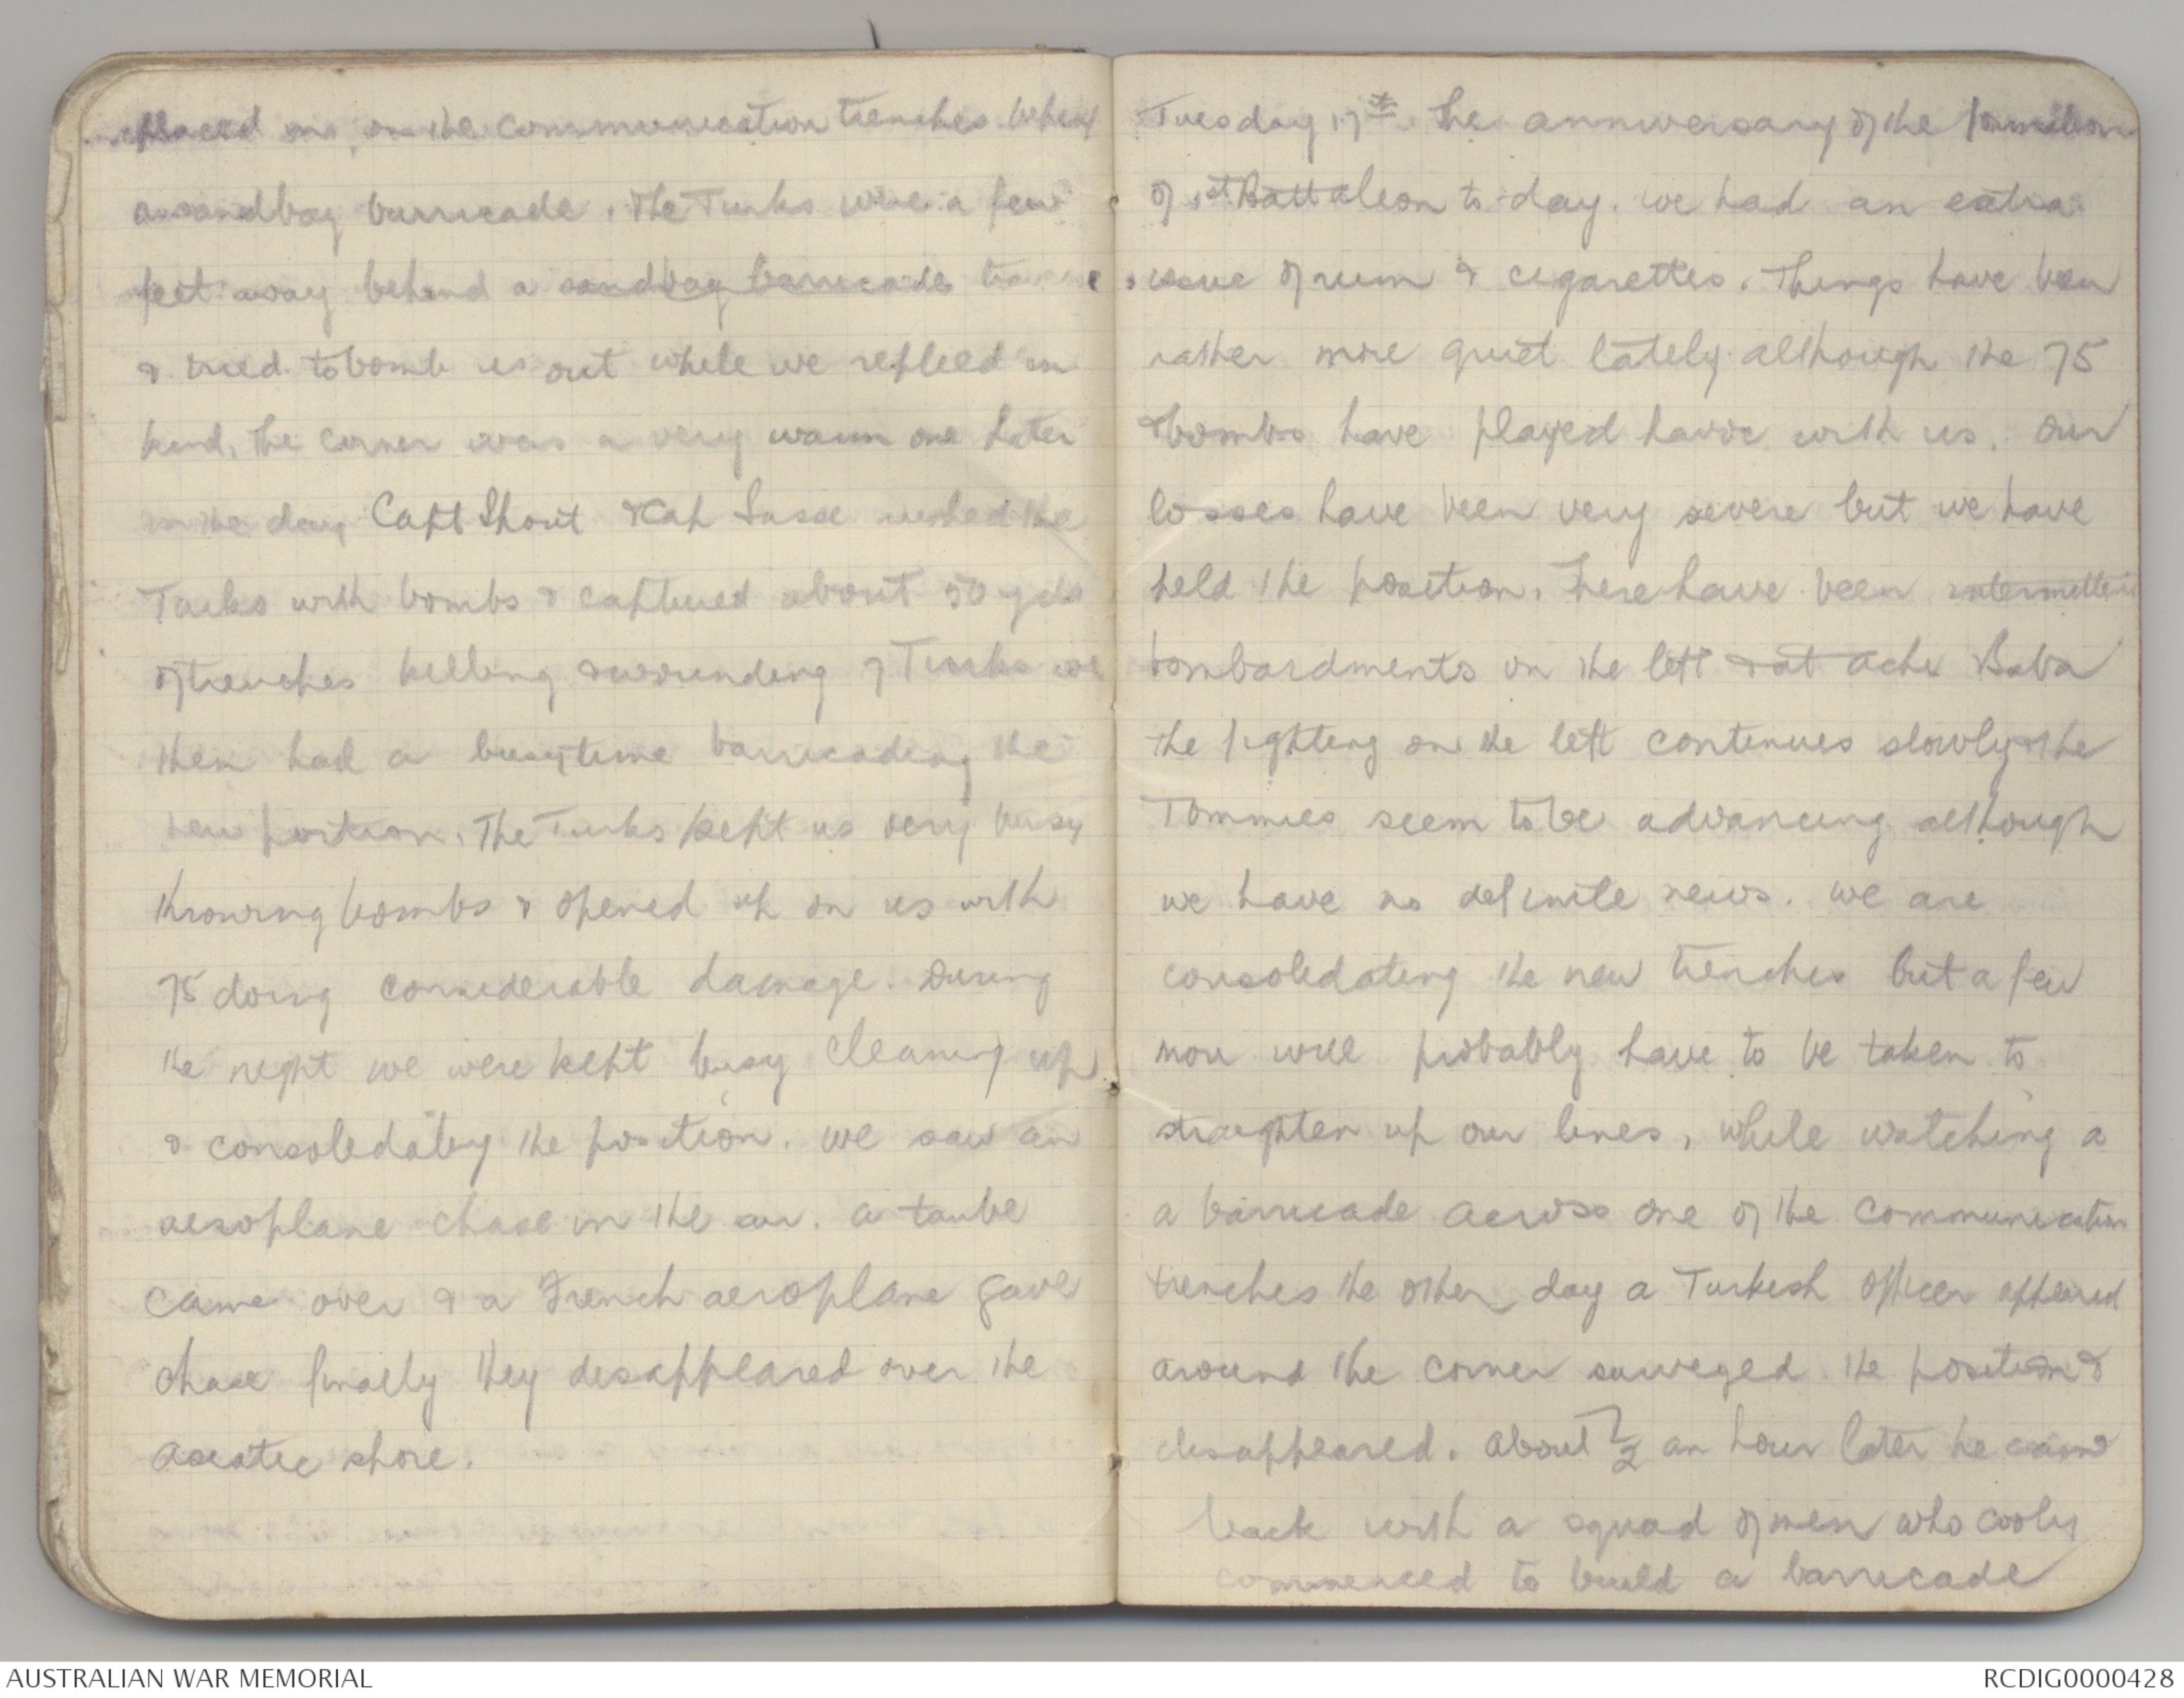 placed me in the communication trenches behind
a sandbag barricade. The Turks were a few
feet away behind a sandbag barricade
& tried to bomb us out while we replied in
kind. The corner was a very warm one later
in the day Capt Shout & Cap Sasse rushed the
Turks with bombs & captured about 50 yds
of trenches killing & wounding 7 Turks we
then had a busy time barricading the
new portion. The Turks kept us very busy
throwing bombs & opened up on us with
75 doing considerable damage. During
the night we were kept busy cleaning up
& consolidating the position. We saw an
aeroplane chase in the air. a taube
came over & a French aeroplane gave
chase finally they desappeared over the
Asiatic shore.
Tuesday 17th. The anniversary of the formation
of 1st Battaleon to-day. We had an extra
issue of rum & cigarettes. Things have been
rather more quiet lately although the 75
& bombs have played havoc with us. Our
losses have been very severe but we have
held the position. There have been
bombardments on the left & at Ache Baba
the fighting on the left continues slowly & the
Tommies seem to be advancing although
we have no definite news. We are
consoledating the new trenches but a few
more will probably have to be taken to
straighten up our lines, While watching a
a barricade across one of the communication
trenches the other day a Turkish Officer appeared
around the corner surveyed the position &
disappeared. About 1/2 an hour later he came
back with a squad of men who cooly
commenced to build a barricade
AUSTRALIAN WAR MEMORIAL
RCDIG0000428